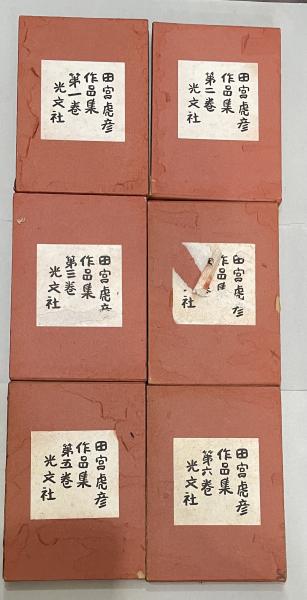 田宮虎彦
作品集
第一巻
光文社
田宮虎彦
作品集
第二巻
光文社
田宮虎彦
作品集
第三巻
光文社
田宮虎彦
作品集
社
田宮虎彦
作品集
第五巻
光文社
田宮虎彦
作品集
第六巻
光文社